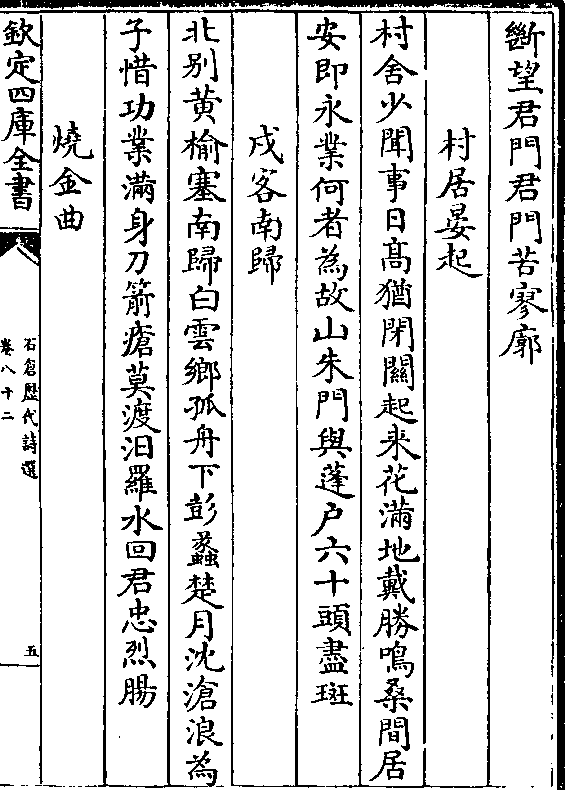 斷望君門君門苦寥廓
村居晏起
村舍少聞事日髙猶閉關起来花滿地戴勝鳴桑間居
安即永業何者為故山朱門與蓬户六十頭盡斑
戍客南歸
北别黄榆塞南歸白雲鄉孤舟下彭蠡楚月沈滄浪為
子惜功業滿身刀箭瘡莫渡汨羅水回君忠烈腸
燒金曲
欽定四庫全書
石倉歴代詩選
卷八十二
五